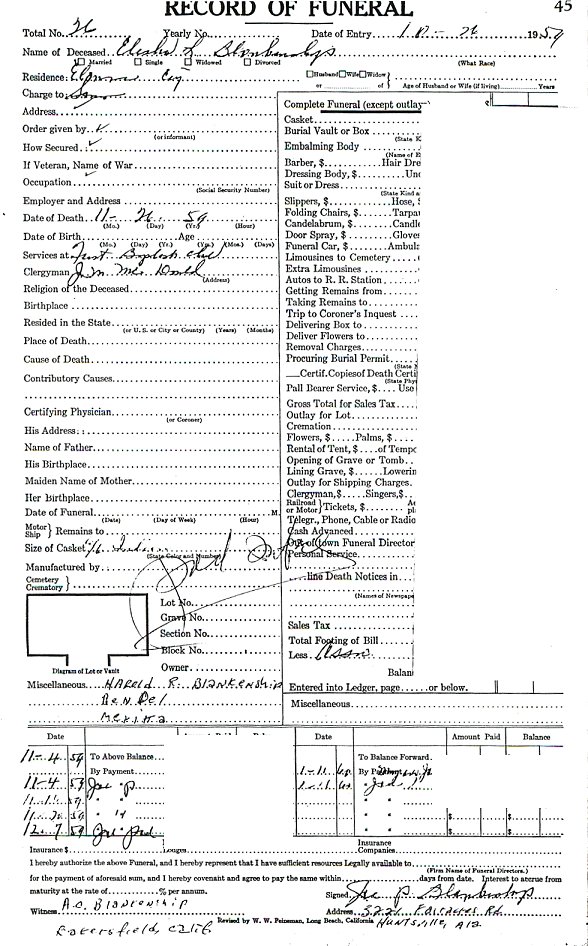 RECORD OF FUNERAL
45
Total No. 26 Yearly No. Date of Entry 10-26 1959
Name of Deceased L. Blankenship
Married Single Widowed Divorced (What Race)
Residence: Husband Wife Widow
or of Age of Husband or Wife (if living) Years
Charge to
Address
Order given by
(or informant)
How Secured
If Veteran, Name of War
Occupation
(Social Security Number)
Employer and Address
Date of Death 11-26 59
(Mo.) (Day) (Yr.) (Hour)
Date of Birth Age
(Mo.) (Day) (Yr.) (Mo.) (Days)
Services at First Baptist
Clergyman J. M.
(Address)
Religion of the Deceased
Birthplace
Resided in the State
(or U. S. or City or County) (Years) (Months)
Place of Death
Cause of Death
Contributory Causes
Certifying Physician
(or Coroner)
His Address:
Name of Father
His Birthplace
Maiden Name of Mother
Her Birthplace
Date of Funeral M.
(Date) (Day of Week) (Hour)
Motor Ship } Remains to
Size of Casket 6/6
(State Color and Number)
Manufactured by
Cemetery Crematory }
Lot No.
Grave No.
Section No.
Block No.
Owner
Diagram of Lot or Vault
Miscellaneous HAROLD R. BLANKENSHIP
BEN DEL
Complete Funeral (except outlay
Casket
Burial Vault or Box
(State K
Embalming Body
(Name of E
Barber, $ Hair Dre
Dressing Body, $ Und
Suit or Dress
(State Kind a
Slippers, $ Hose, $
Folding Chairs, $ Tarpau
Candelabrum, $ Candle
Door Spray, $ Gloves
Funeral Car, $ Ambula
Limousines to Cemetery
Extra Limousines
Autos to R. R. Station
Getting Remains from
Taking Remains to
Trip to Coroner's Inquest
Delivering Box to
Deliver Flowers to
Removal Charges
Procuring Burial Permit
(State N
Certif. Copies of Death Certi
(State Phy
Pall Bearer Service, $ Use
Gross Total for Sales Tax
Outlay for Lot
Cremation
Flowers, $ Palms, $
Rental of Tent, $ of Tempo
Opening of Grave or Tomb
Lining Grave, $ Lowerin
Outlay for Shipping Charges
Clergyman, $ Singers, $
Railroad or Motor } Tickets, $
Telegr., Phone, Cable or Radio
Cash Advanced
Out of town Funeral Director
Personal Service
line Death Notices in
(Names of Newspape
Sales Tax
Total Footing of Bill
Less
Balan
Entered into Ledger, page or below.
Miscellaneous
Date Date Amount Paid Balance
11-4 59 To Above Balance To Balance Forward.
By Payment 1-11 60 By Payment
11-4 59 Joe P
59
59 "
12-7 59 Joe
Insurance $ Lodges Insurance Companies
I hereby authorize the above Funeral, and I hereby represent that I have sufficient resources Legally available to
(Firm Name of Funeral Directors.)
for the payment of aforesaid sum, and I hereby covenant and agree to pay the same within days from date. Interest to accrue from
maturity at the rate of % per annum.
Signed Joe P. Blankenship
A.O. BLANKENSHIP
Witness Address 3221 Fairacres Rd
Revised by W. W. Peizeman, Long Beach, California HUNTSVILLE, ALA
Bakersfield, Calif